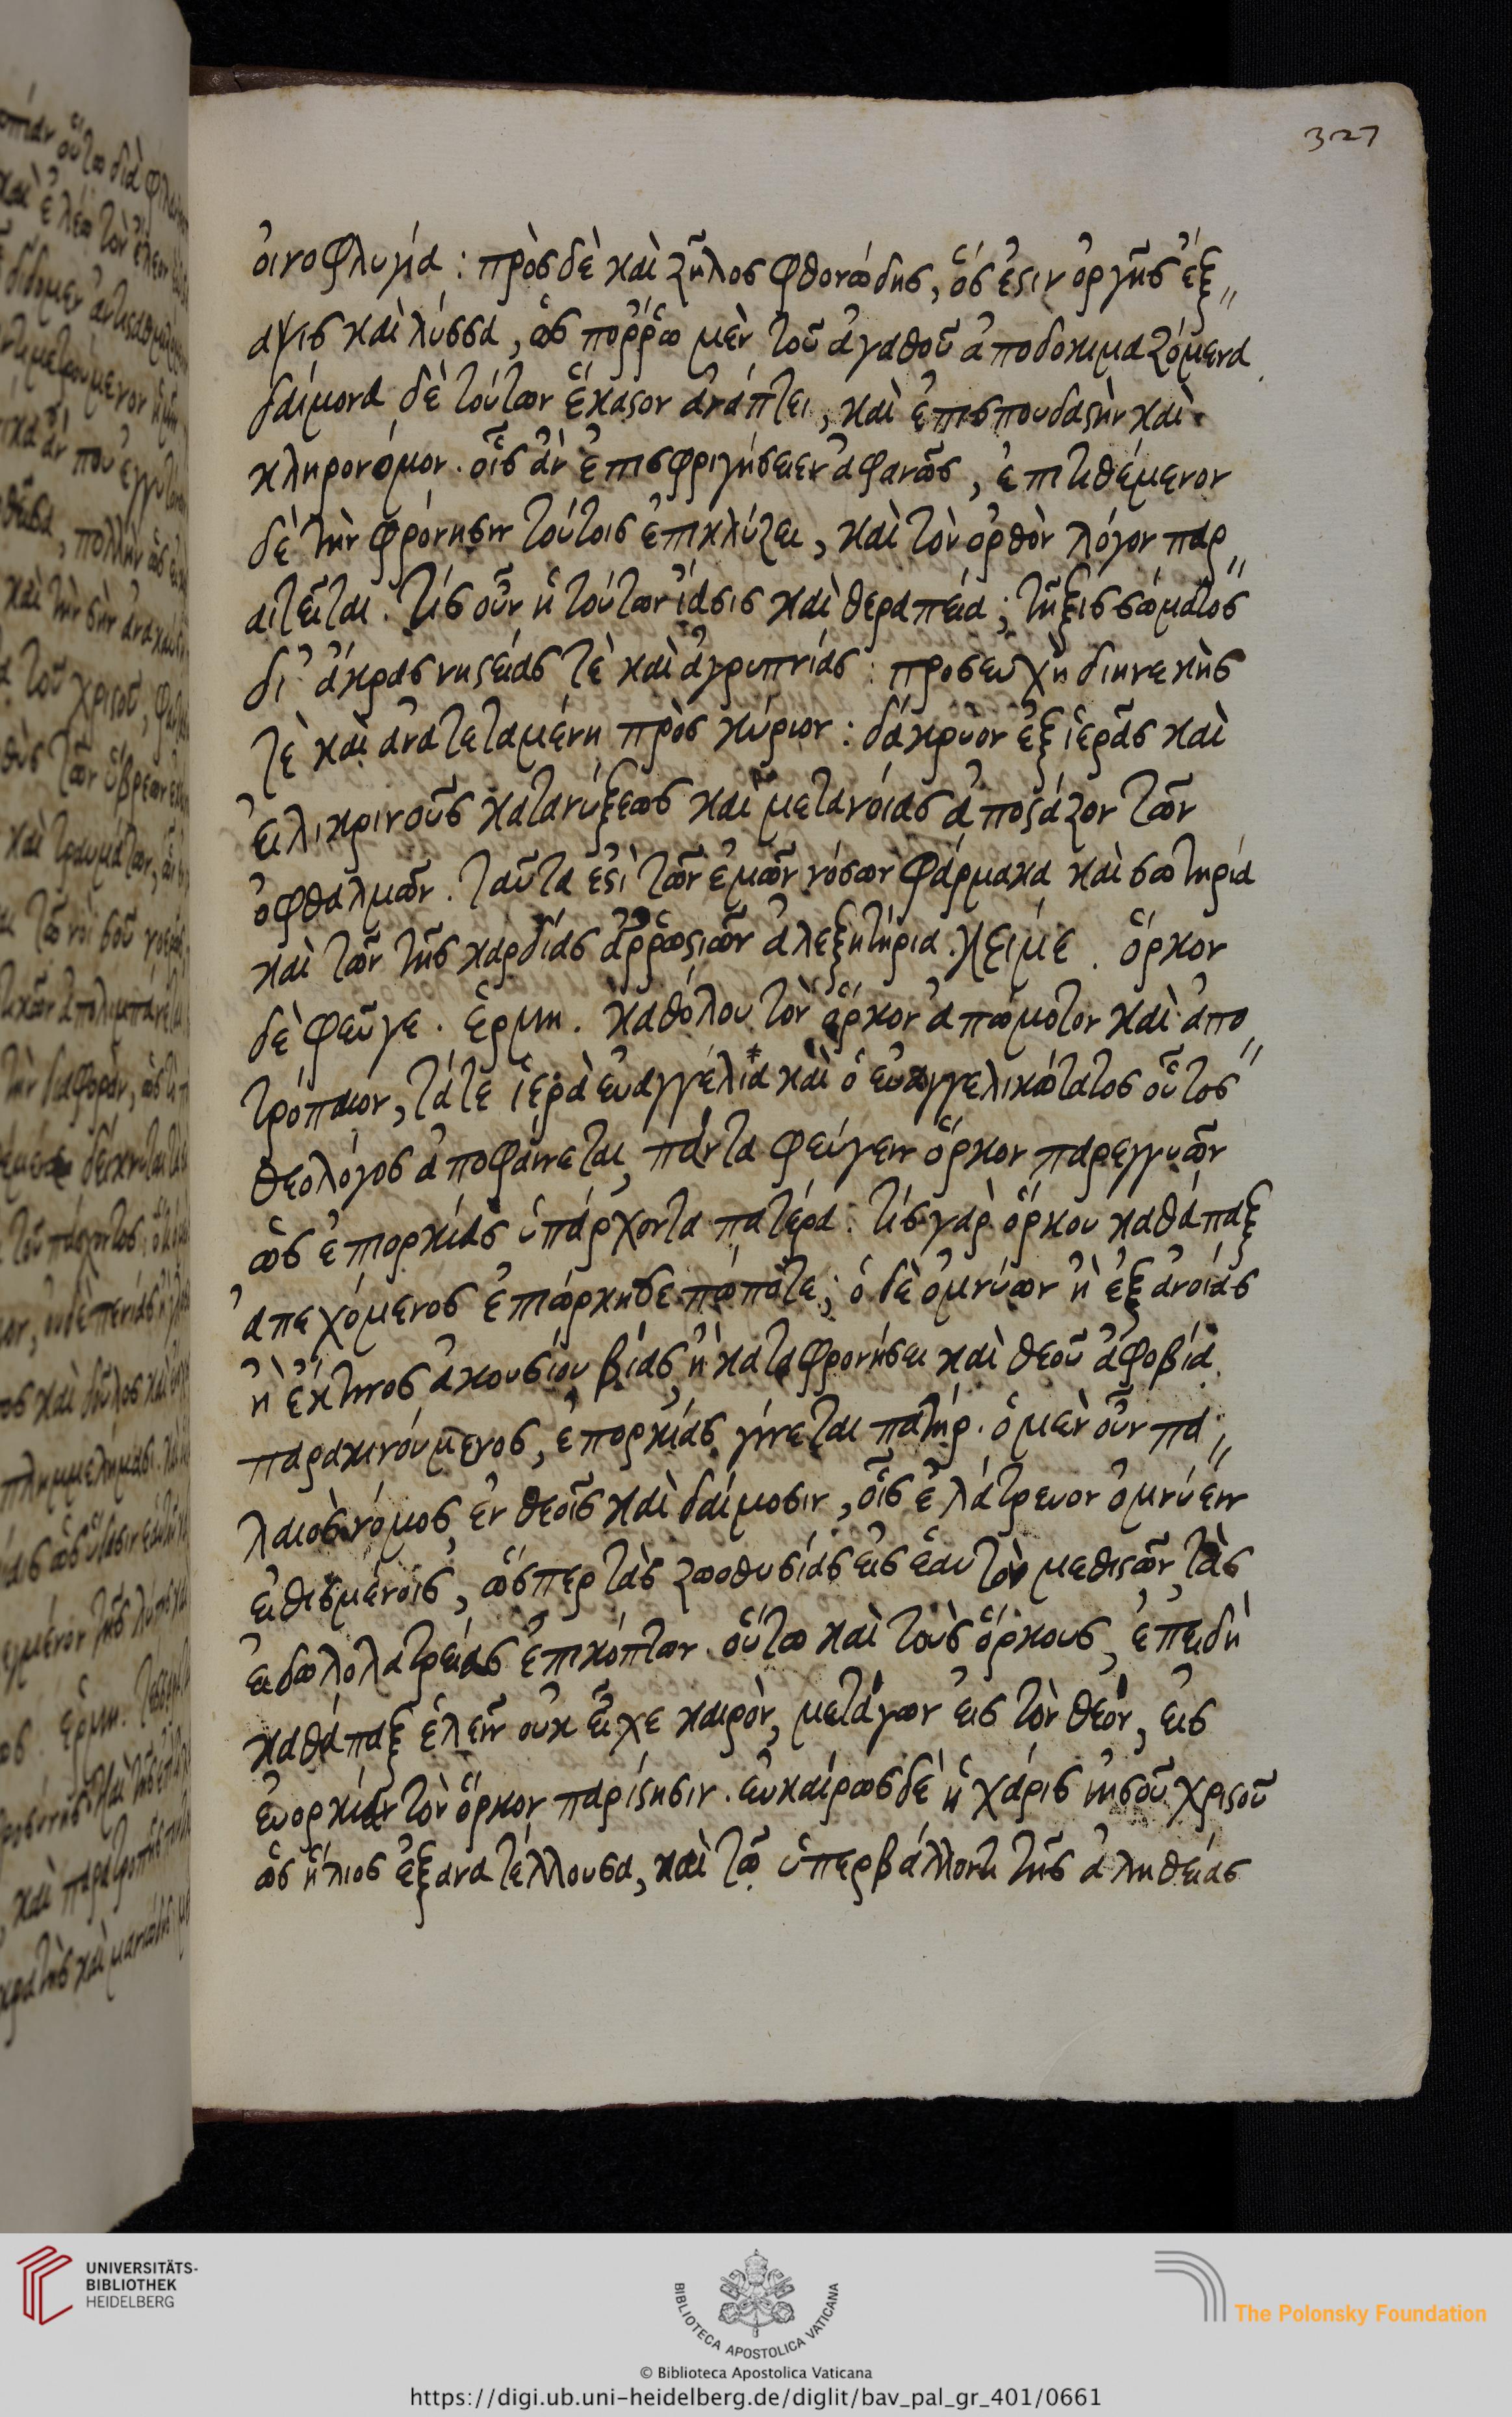 327
οἰνοφλυγία : πρὸς δὲ καὶ ζῆλος φθονώδης, ὅς ἐστιν ὀργῆς ἔξ〃
αψις καὶ λύσσα, ὡς πόῤῥω μὲν τοῦ ἀγαθοῦ ἀποδοκιμαζόμενα
δαίμονα δὲ τούτων ἕκαστον ἀνάπτει, καὶ ἐπισπουδαστὴν καὶ
κληρονόμον. οἷς ἂν ἐπισφριγήσειεν ἀφανῶς, ἐπιτιθέμενον
δὲ τὴν φρόνησιν τούτοις ἐπικλύζει, καὶ τὸν ὀρθὸν λόγον παρ〃
αιτεῖται. τίς οὖν ἡ τούτων ἴασις καὶ θεραπεία; τῆξις σώματος
δι' ἄκρας νηστείας τὲ καὶ ἀγρυπνίας : προσευχὴ διηνεκὴς
τὲ καὶ ἀνατεταμένη πρὸς κύριον : δάκρυον ἐξ ἱερᾶς καὶ
εἰλικρινοῦς κατανύξεως καὶ μετανοίας ἀποστάζον τῶν
ὀφθαλμῶν. ταῦτα ἐστὶ τῶν ἐμῶν νόσων φάρμακα καὶ σωτηρία
καὶ τῶν τῆς καρδίας ἀῤῥωστιῶν ἀλεξητήρια. κείμε. ὅρκον
δὲ φεῦγε. ἑρμη. καθόλου τὸν ὅρκον ἀπώμοτον καὶ ἀπο〃
τρόπαιον, τά τε ἱερὰ εὐαγγέλια καὶ ὁ εὐαγγελικώτατος οὗτος
θεολόγος ἀποφαίνεται, πάντα φεύγειν ὅρκον παρεγγυῶν
ὡς ἐπιορκίας ὑπάρχοντα πατέρα. τίς γὰρ ὅρκου καθάπαξ
ἀπεχόμενος ἐπιώρκησε πώποτε; ὁ δὲ ὀμνύων ἢ ἐξ ἀνοίας
ἢ ἔκ τινος ἀκουσίου βίας, ἢ καταφρονήσει καὶ θεοῦ ἀφοβία
παρακινούμενος, ἐπορκίας γίνεται πατήρ. ὁ μὲν οὖν πα〃
λαιὸς νόμος, ἐν θεοῖς καὶ δαίμοσιν, οἷς ἐλάτρευον ὀμνύειν
εἰθισμένοις, ὥσπερ τὰς ζωοθυσίας εἰς ἑαυτὸν μεθιστῶν, τὰς
εἰδωλολατρείας ἐπικόπτων. οὕτω καὶ τοὺς ὅρκους, ἐπειδὴ
καθάπαξ ἑλεῖν οὐκ εἶχε καιρὸν, μετάγων εἰς τὸν θεὸν, εἰς
εὐορκίαν τὸν ὅρκον παρίστησιν. εὐκαίρως δὲ ἡ χάρις ἰησοῦ χριστοῦ
ὡς ἥλιος ἐξανατέλλουσα, καὶ τῷ ὑπερβάλλοντι τῆς ἀληθείας
UNIVERSITÄTS-
BIBLIOTHEK
HEIDELBERG
BIBLIOTECA APOSTOLICA VATICANA
The Polonsky Foundation
© Biblioteca Apostolica Vaticana
https://digi.ub.uni-heidelberg.de/diglit/bav_pal_gr_401/0661